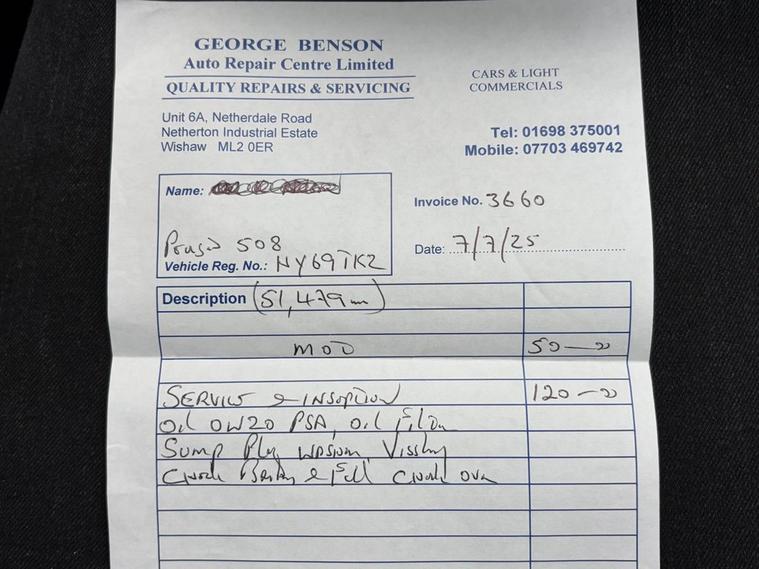 GEORGE BENSON
Auto Repair Centre Limited
QUALITY REPAIRS & SERVICING
CARS & LIGHT
COMMERCIALS
Unit 6A, Netherdale Road
Netherton Industrial Estate
Wishaw ML2 0ER
Tel: 01698 375001
Mobile: 07703 469742
Name:
Invoice No. 3660
508
Date: 7/7/25
Vehicle Reg. No.:
Description (51,479m)
MOT 50-00
SERVICE & 120-00
Oil 0W20 PSA, Oil Filter
Sump Plug
& Full Check Over